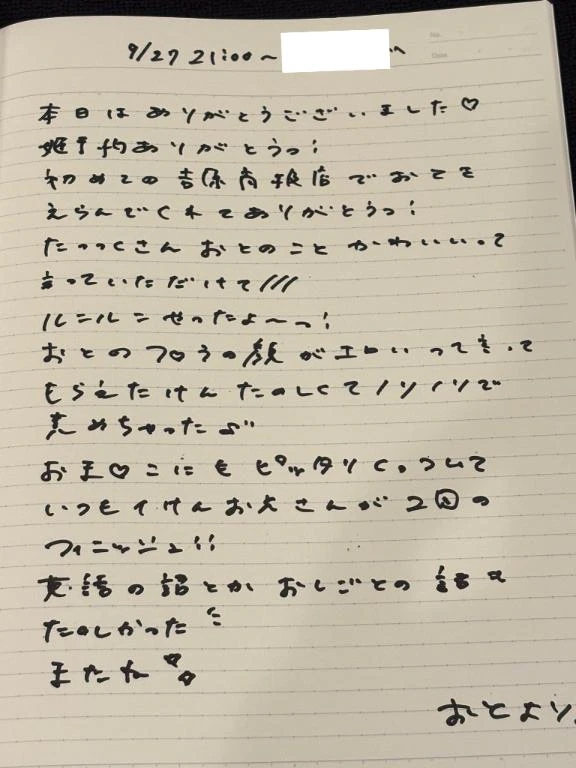 9/27 21:00～ へ
No.
Date
本日はありがとうございました♡
姫予約ありがとうっ!
初めての吉原高級店でおとを
えらんでくれてありがとうっ!
たっっくさんおとのことかわいいって
言っていただけて///
ルンルンせったよ～っ!
おとのフ♡うの顔がエロいって言って
もらえたけんたのしくてノリノリで
責めちゃったよ"
お王♡こにもピッタリくっついて
いつもイけんお兄さんが2回の
フィニッシュ!!
英語の話とかおしごとの話も
たのしかった
またね♡♡
おとより.